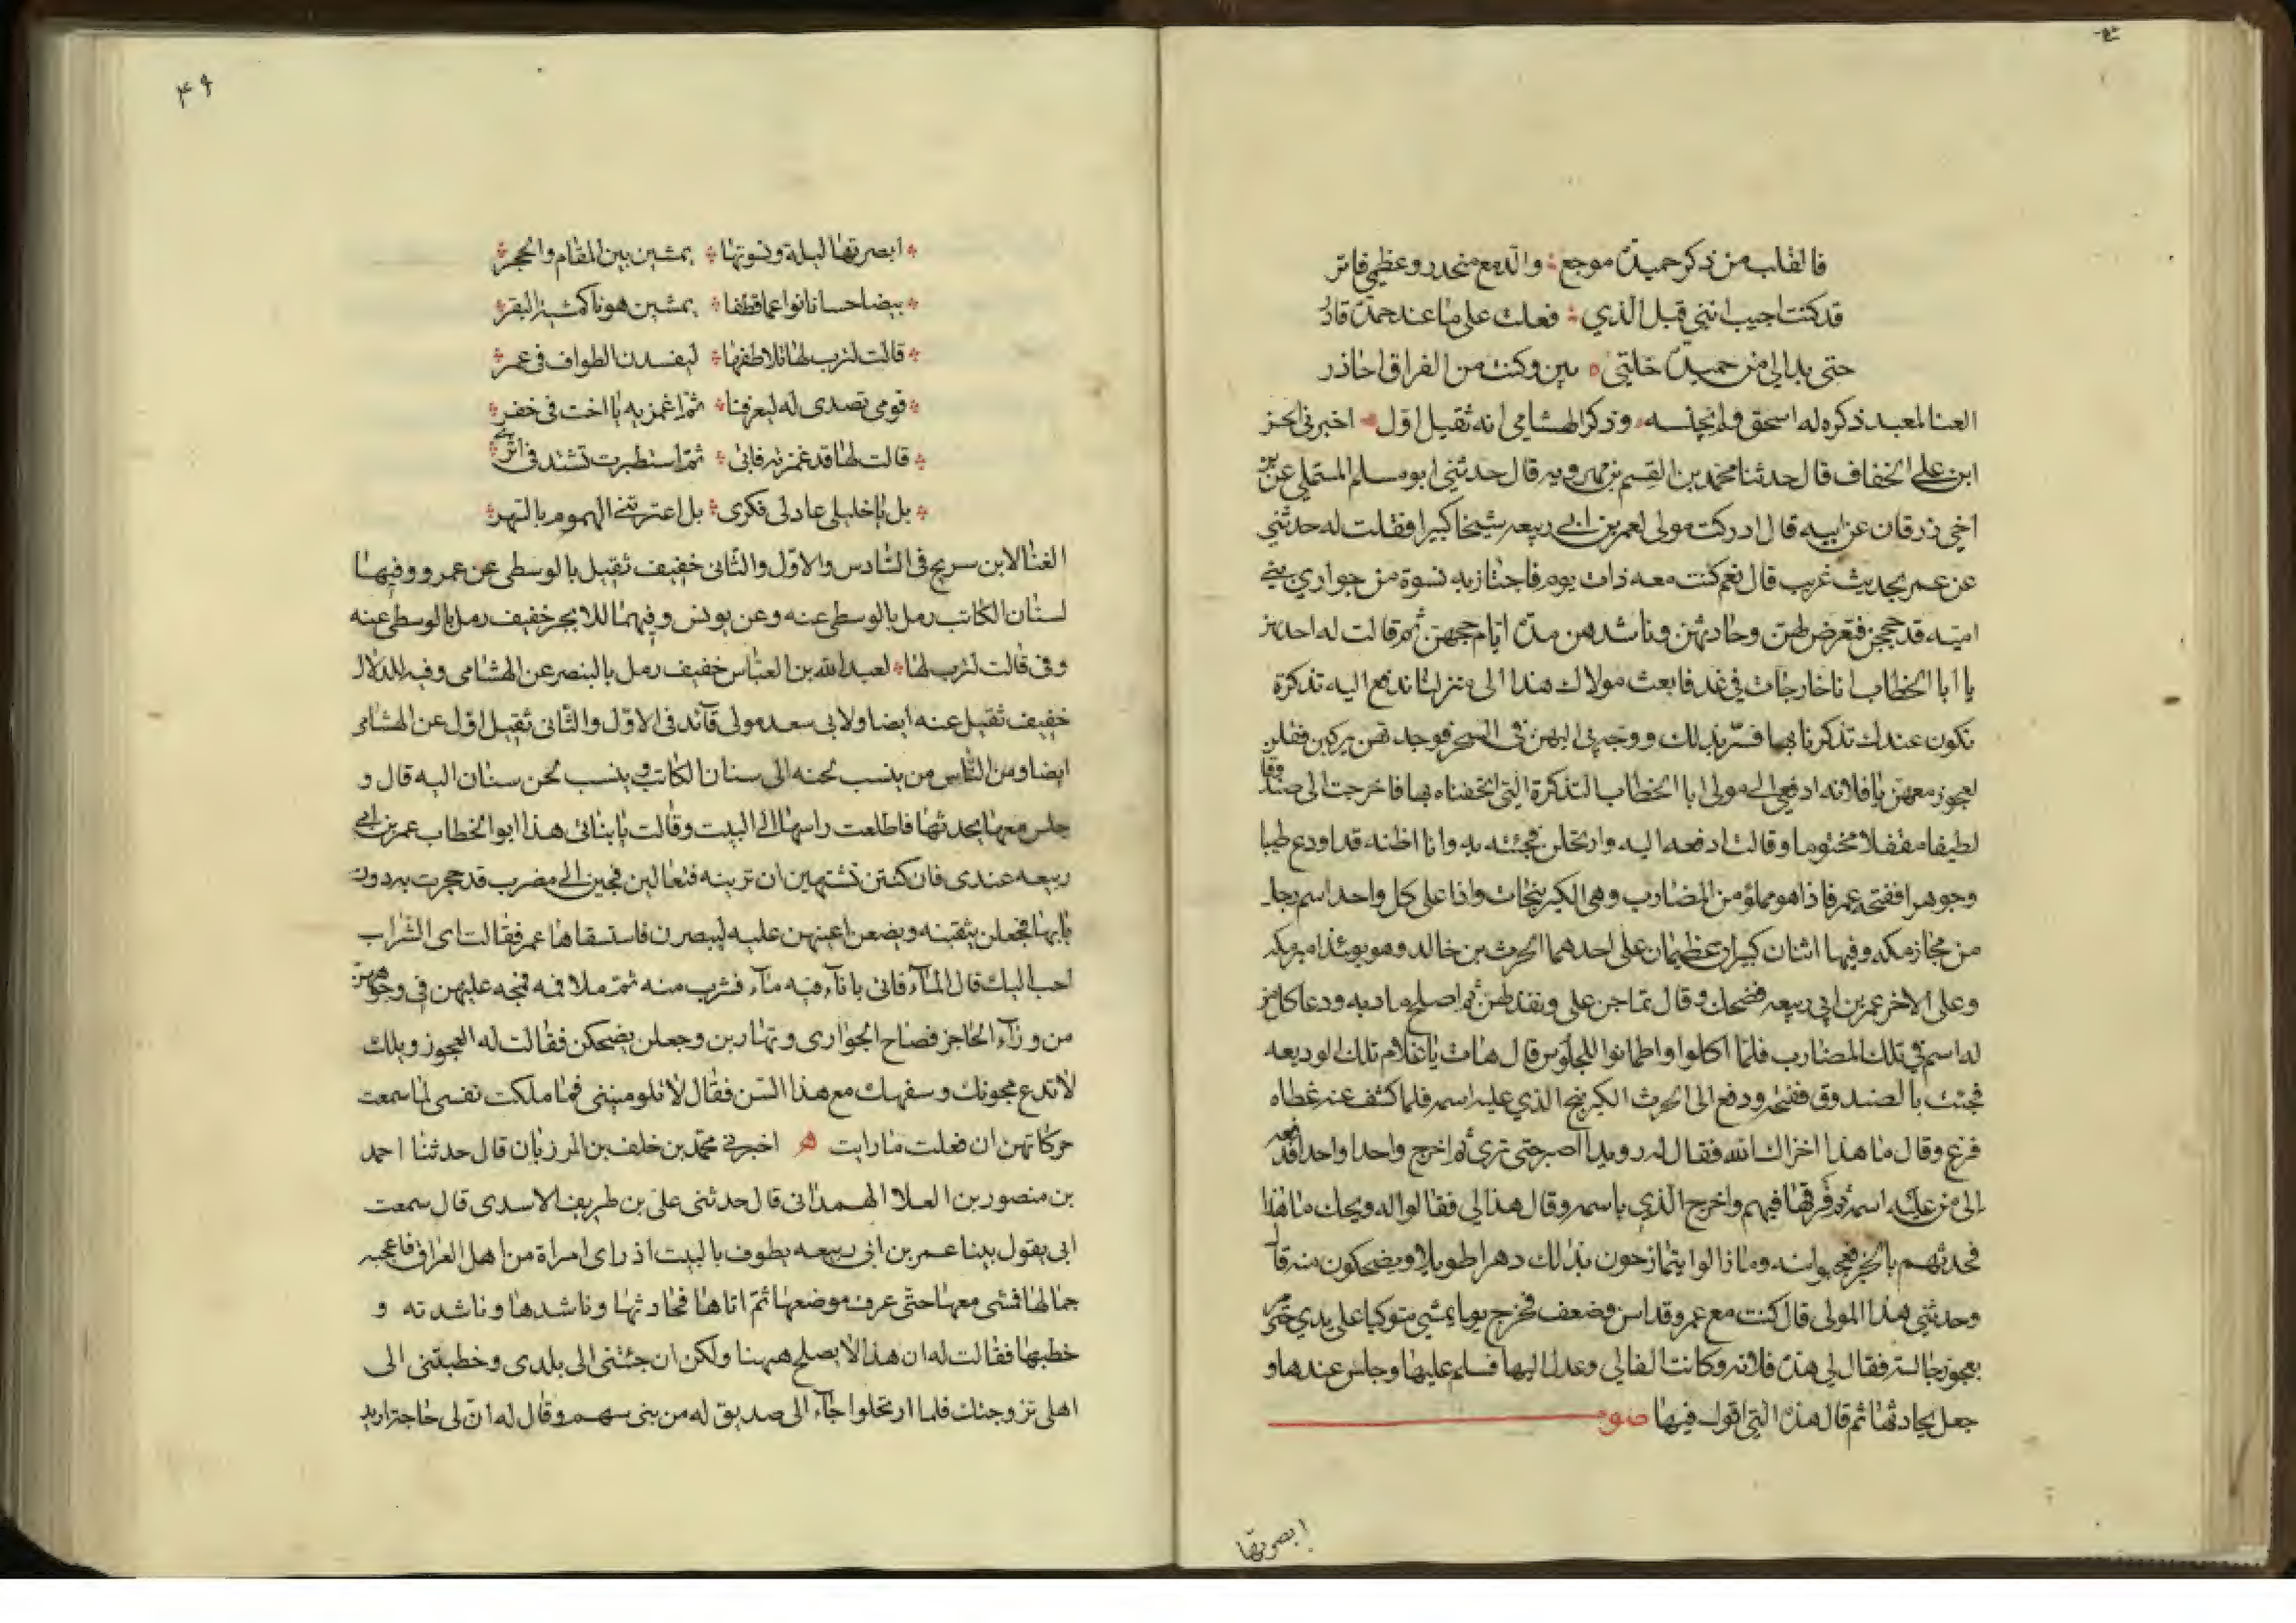 فالقلب من ذكر حميدة موجع والدمع منحدر وعظمي فاتر
قد كنت احيب انني قبل الذي فعلت على ما عند حمدة قادر
حتى بدا لي من حميدة خلتي بين وكنت من الفراق احاذر
الغنا لمعبد ذكره له اسحق ولم يجنسه وذكر الهشامي انه ثقيل اول اخبرني الحسن
ابن علي الخفاف قال حدثنا محمد بن القسم بن مهرويه قال حدثني ابو مسلم المستملي عن بن
اخي زرقان عن ابيه قال ادركت مولى لعمر بن ابي ربيعه شيخا كبيرا فقلت له حدثني
عن عمر بحديث غريب قال نعم كنت معه ذات يوم فاجتاز به نسوة من جواري بني
اميه قد حججن فتعرض لهن وحادثهن وناشدهن مدة ايام حجهن ثم قالت له احديهن
يا ابا الخطاب انا خارجات في غد فابعث مولاك هذا الى منزلنا ندفع اليه تذكرة
تكون عندك تذكرنا بها فسر بذلك ووجهني اليهن في السحر فوجدتهن يركبن فقلن
لعجوز معهن يا فلانه ادفعي الى مولى ابا الخطاب التذكرة التي اتحفناه بها فاخرجت الى صندوقا
لطيفا مقفلا مختوما وقالت ادفعه اليه وارتحلن فجئته به وانا اظنه قد اودع طيبا
وجوهرا ففتحه عمر فاذا هو مملؤ من المضارب وهي الكيرنجات واذا على كل واحد اسم رجل
من مجاز مكه وفيها اثنان كبيران عظيمان على احدهما الحرث بن خالد وهو يومئذ امير مكه
وعلى الاخر عمر بن ابي ربيعه فضحك وقال تماجن علي ونفذ لهن ثم اصلح مادبه ودعا كل من
له اسم في تلك المضارب فلما اكلوا واطمانوا للجلوس قال هات يا غلام تلك الوديعه
فجئت بالصندوق ففتحه ودفع الى الحرث الكيرنج الذي عليه اسمه فلما كشف عنه غطاه
فزع وقال ما هذا اخزاك الله فقال له رويدا اصبر حتى ترى ثم اخرج واحدا واحدا فدفعه
الى من عليه اسمه ثم فرقها فيهم واخرج الذي باسمه وقال هذا لي فقالوا له ويحك ما هذا
فحدثهم بالخبر فعجبوا منه وما زالوا يتمازحون بذلك دهرا طويلا ويضحكون منه قال
وحدثني هذا المولى قال كنت مع عمر وقد اسن وضعف فخرج يوما يمشي متوكيا على يدي حتى مر
بعجوز جالسة فقال لي هذه فلانه وكانت الفا لي وعدل اليها فسلم عليها وجلس عندها و
جعل يحادثها ثم قال هذه التي اقول فيها صوت
ابصرتها
۴۹
ابصرتها ليلة ونسوتها يمشين بين المقام والحجر
بيضا حسانا نواعما قطفا يمشين هونا كمشية البقر
قالت لترب لها تلاطفها ليفسدن الطواف في عمر
قومي تصدى له ليعرفنا ثم اغمزيه يا اخت في خفر
قالت لها قد غمزته فابى ثم استطيرت تشتد في اثري
بل يا خليلي عادلي فكري بل اعترتني الهموم بالسهر
الغنا لابن سريج في السادس والاول والثاني خفيف ثقيل بالوسطى عن عمرو وفيها
لسنان الكاتب رمل بالوسطى عنه وعن يونس وفيهما للابجر خفيف رمل بالوسطى عنه
وفي قالت لترب لها لعبد الله بن العباس خفيف رمل بالبنصر عن الهشامي وفيه للدلال
خفيف ثقيل عنه ايضا ولابي سعد مولى قآئد في الاول والثاني ثقيل اول عن الهشامي
ايضا ومن الناس من ينسب لحنه الى سنان الكاتب وينسب لحن سنان اليه قال و
جلس معها يحدثها فاطلعت راسها الى البيت وقالت يا بناتي هذا ابو الخطاب عمر بن ابي
ربيعه عندي فان كنتن تشتهين ان ترينه فتعالين فجئن الى مضرب قد حجرت به دون
بابها فجعلن يثقبنه ويضعن اعينهن عليه ليبصرن فاستسقاها عمر فقالت اي الشراب
احب اليك قال المآء فاتى باناء فيه مآء فشرب منه ثم ملا فيه فمجه عليهن في وجوههن
من ورآء الحاجز فصاح الجواري وتهاربن وجعلن يضحكن فقالت له العجوز ويلك
لا تدع مجونك وسفهك مع هذا السن فقال لا تلومينني فما ملكت نفسي لما سمعت
حركاتهن ان فعلت ما رايت اخبرني محمد بن خلف بن المرزبان قال حدثنا احمد
بن منصور بن العلا الهمداني قال حدثني علي بن طريف الاسدي قال سمعت
ابي يقول بينا عمر بن ابي ربيعه يطوف بالبيت اذ راى امراة من اهل العراق فاعجبه
جمالها فمشى معها حتى عرف موضعها ثم اتاها فحادثها وناشدها وناشدته و
خطبها فقالت له ان هذا لا يصلح ههنا ولكن ان جئتني الى بلدي وخطبتني الى
اهلي تزوجتك فلما ارتحلوا جآء الى صديق له من بني سهم وقال له ان لي حاجة اريد